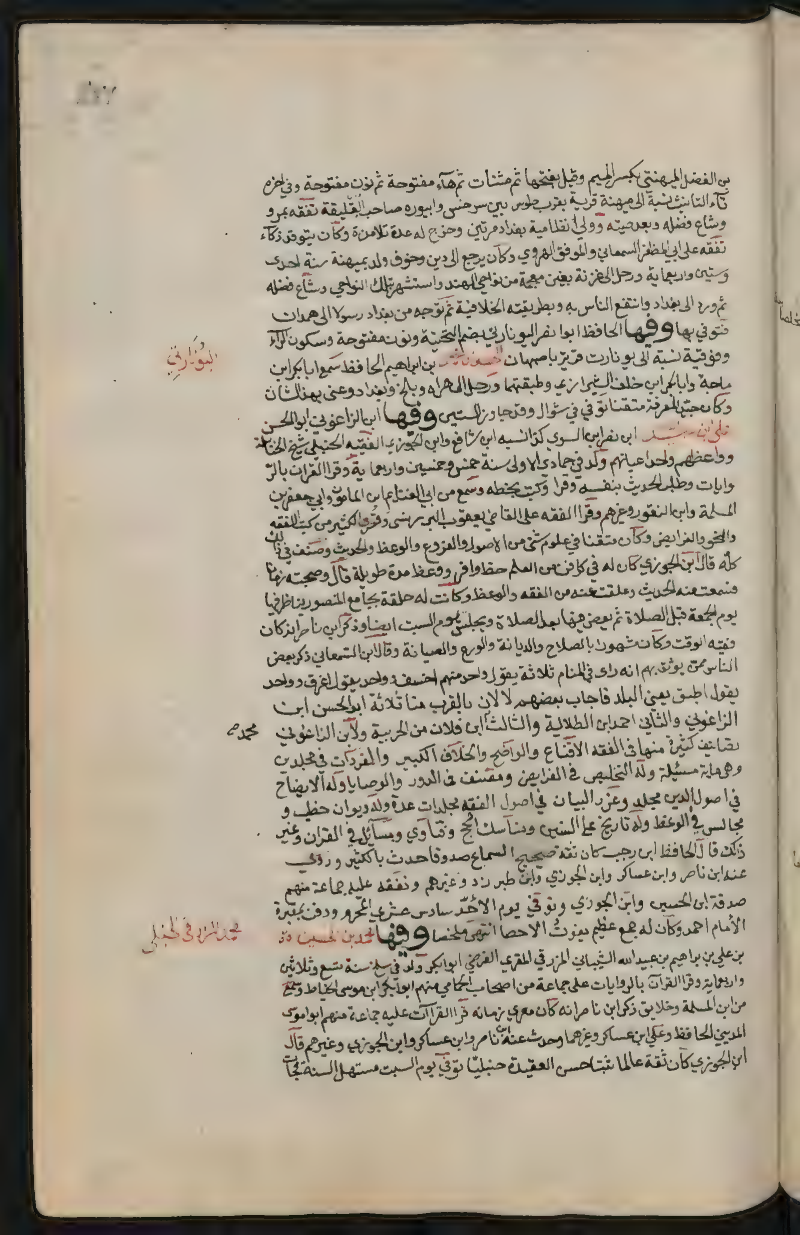 بن الفضل الميهنتي بكسر الميم وقيل بفتحها ثم مثنات ثم هآء مفتوحة ثم نون مفتوحة وفي اخره
تآء التانيث نسبة الى ميهنة قرية بقرب طوس بين سرخس وابيورد صاحب التعليقة تفقه بمرو
وشاع فضله وبعد صيته وولي نظامية بغداد مرتين وخرج له عدة تلامذة وكان يتوقد ذكآء
تفقه على ابي المظفر السمعاني والموفق الهروي وكان يرجع الى دين وخوف ولد بميهنة سنة احدى
وستين واربعماية ورحل الى غزنة بغين معجمة من نواحي الهند واشتهر بتلك النواحي وشاع فضله
ثم ورد الى بغداد وانتفع الناس به وبطريقته الخلافية ثم توجه من بغداد رسولا الى همدان
فتوفي بها وفيها الحافظ ابو نصر اليونارتي بضم التحتية ونون مفتوحة وسكون الرآء
وفوقية نسبة الى يونارت قرية باصبهان الحسن بن محمد بن ابراهيم الحافظ سمع ابا بكر ابن
ماجة وابا بكر ابن خلف الشيرازي وطبقتهما ورحل الى هراه وبلخ وبغداد وعني بهذا الشان
وكان جيد المعرفة متقنا توفي في شوال وقد جاوز الستين وفيها ابن الزاغوني ابو الحسن
علي ابن عبيد الله ابن نصر ابن السري كذا نسبه ابن شافع وابن الجوزي الفقيه الحنبلي شيخ الحنابلة
وواعظهم واحد اعيانهم ولد في جمادي الاولى سنة خمس وخمسين واربعماية وقرا القران بالر
وايات وطلب الحديث بنفسه وقرا وكتب بخطه وسمع من ابي الغنايم ابن المامون وابي جعفر بن
المسلمة وابن النقور وغيرهم وقرا الفقه على القاضي يعقوب البرزبيني وقرا الكثير من كتب الفقه
والنحو والفرايض وكان متقنا في علوم شتى من الاصول والفروع والوعظ والحديث وصنف في ذلك
كله قال ابن الجوزي كان له في كل فن من العلم حظ وافر ووعظ مدة طويلة قال وصحبته زمانا
فسمعت منه الحديث وعلقت عنه من الفقه والوعظ وكانت له حلقة بجامع المنصور يناظر فيها
يوم الجمعة قبل الصلاة ثم يعظ فيها بعد الصلاة ويجلس يوم السبت ايضا وذكر ابن ناصر انه كان
فقيه الوقت وكان مشهورا بالصلاح والديانة والورع والصيانة وقال ابن السمعاني ذكر بعض
الناس ممن يوثق بهم انه راى في المنام ثلاثة يقول واحد منهم اخسف وواحد يقول اغرق وواحد
يقول اطبق يعني البلد فاجاب بعضهم لا لان بالقرب منا ثلاثة ابو الحسن ابن
الزاغوني والثاني احمد ابن الطلاية والثالث محمد ابن فلان من الحربية ولابن الزاغوني
تصانيف كثيرة منها في الفقه الاقناع والواضح والخلاف الكبير والمفردات في مجلدين
وهي ماية مسئلة وله التلخيص في الفرايض ومصنف في الدور والوصايا وله الايضاح
في اصول الدين مجلد وغرر البيان في اصول الفقه مجلدات عدة وله ديوان خطب و
مجالس في الوعظ وله تاريخ على السنين ومناسك الحج وفتاوي ومسائل في القران وغير
ذلك قال الحافظ ابن رجب كان ثقة صحيح السماع صدوقا حدث بالكثير وروى
عنه ابن ناصر وابن عساكر وابن الجوزي وابن طبرزد وغيرهم وتفقه عليه جماعة منهم
صدقة ابن الحسين وابن الجوزي وتوفي يوم الاحد سادس عشري المحرم ودفن بمقبرة
الامام احمد وكان له جمع عظيم يفوت الاحصا انتهى ملخصا وفيها محمد بن الحسين
بن علي بن براهيم بن عبيد الله الشيباني المزرفي المقري الفرضي ابو بكر ولد في سلخ سنة تسع وثلاثين
واربعماية وقرا القرآن بالروايات على جماعة من اصحاب الحمامي منهم ابو بكر ابن موسى الخياط وسمع
من ابن المسلمة وخلايق ذكر ابن ناصر انه كان مقري زمانه قرا القرآن عليه جماعة منهم ابو موسى
المديني الحافظ وعلي ابن عساكر وغيرهما وحدث عنه ابن ناصر وابن عساكر وابن الجوزي وغيرهم قال
ابن الجوزي كان ثقة عالما ثبتا حسن العقيدة حنبليا توفي يوم السبت مستهل السنة فجاة
اليونارتي
محمد صح
محمد المزرفي الحنبلي